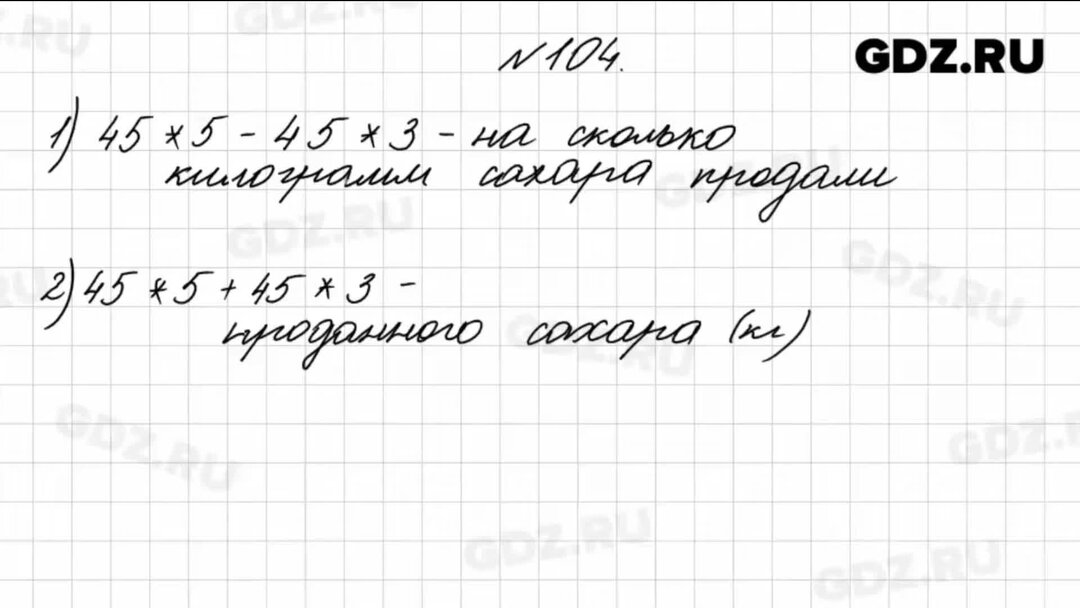 №104.
GDZ.RU
1) 45 * 5 - 45 * 3 - на сколько
килограмм сахара продали
2) 45 * 5 + 45 * 3 -
проданного сахара (кг)